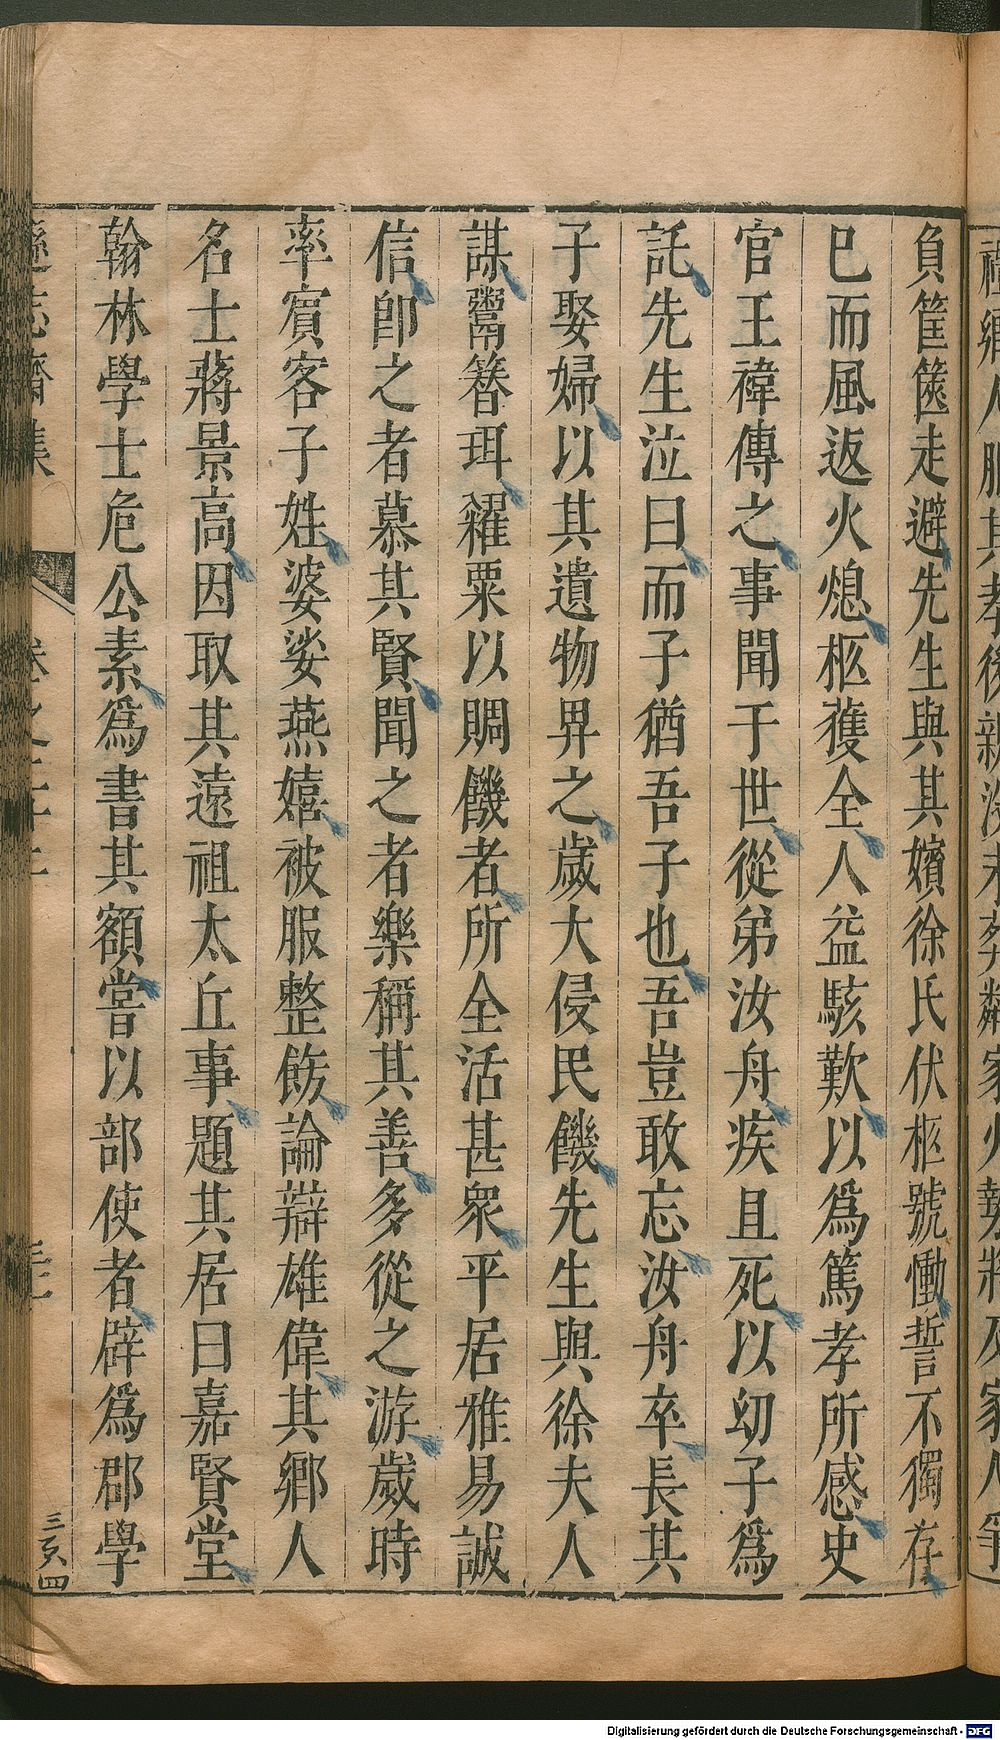 負筐篋走避先生與其嬪徐氏伏柩號慟誓不獨存
巳而風返火熄柩獲全人益駭歎以爲篤孝所感史
官王禕傳之事聞于世從弟汝舟疾且死以㓜子爲
託先生泣曰而子猶吾子也吾豈敢忘汝舟卒長其
子娶婦以其遺物畀之歲大侵民饑先生與徐夫人
謀鬻簪珥糴粟以賙饑者所全活甚衆平居雅易誠
信卽之者慕其賢聞之者樂稱其善多從之游歲時
率賓客子姓婆娑燕嬉被服整飭論辯雄偉其鄉人
名士蔣景高因取其遠祖太丘事題其居曰嘉賢堂
翰林學士危公素爲書其額嘗以部使者辟爲郡學
三亥四
Digitalisierung gefördert durch die Deutsche Forschungsgemeinschaft - DFG